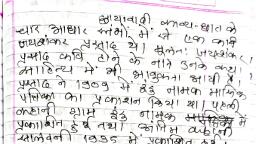 छायावादी काव्य-धारा के
चार आधार स्तंभों में से एक कवि
जयशंकर प्रसाद थे। मूलतः जयशंकर
प्रसाद कवि होने के नाते उनके
साहित्य में भी भावुकता आयी है।
प्रसाद ने 1909 में इंदु नामक मासिक
पत्रिका का प्रकाशन किया था। पहली
कहानी ग्राम इंदु नामक में
प्रकाशित हुई तथा अंतिम कहानी
सालवती 1935 में प्रकाशित